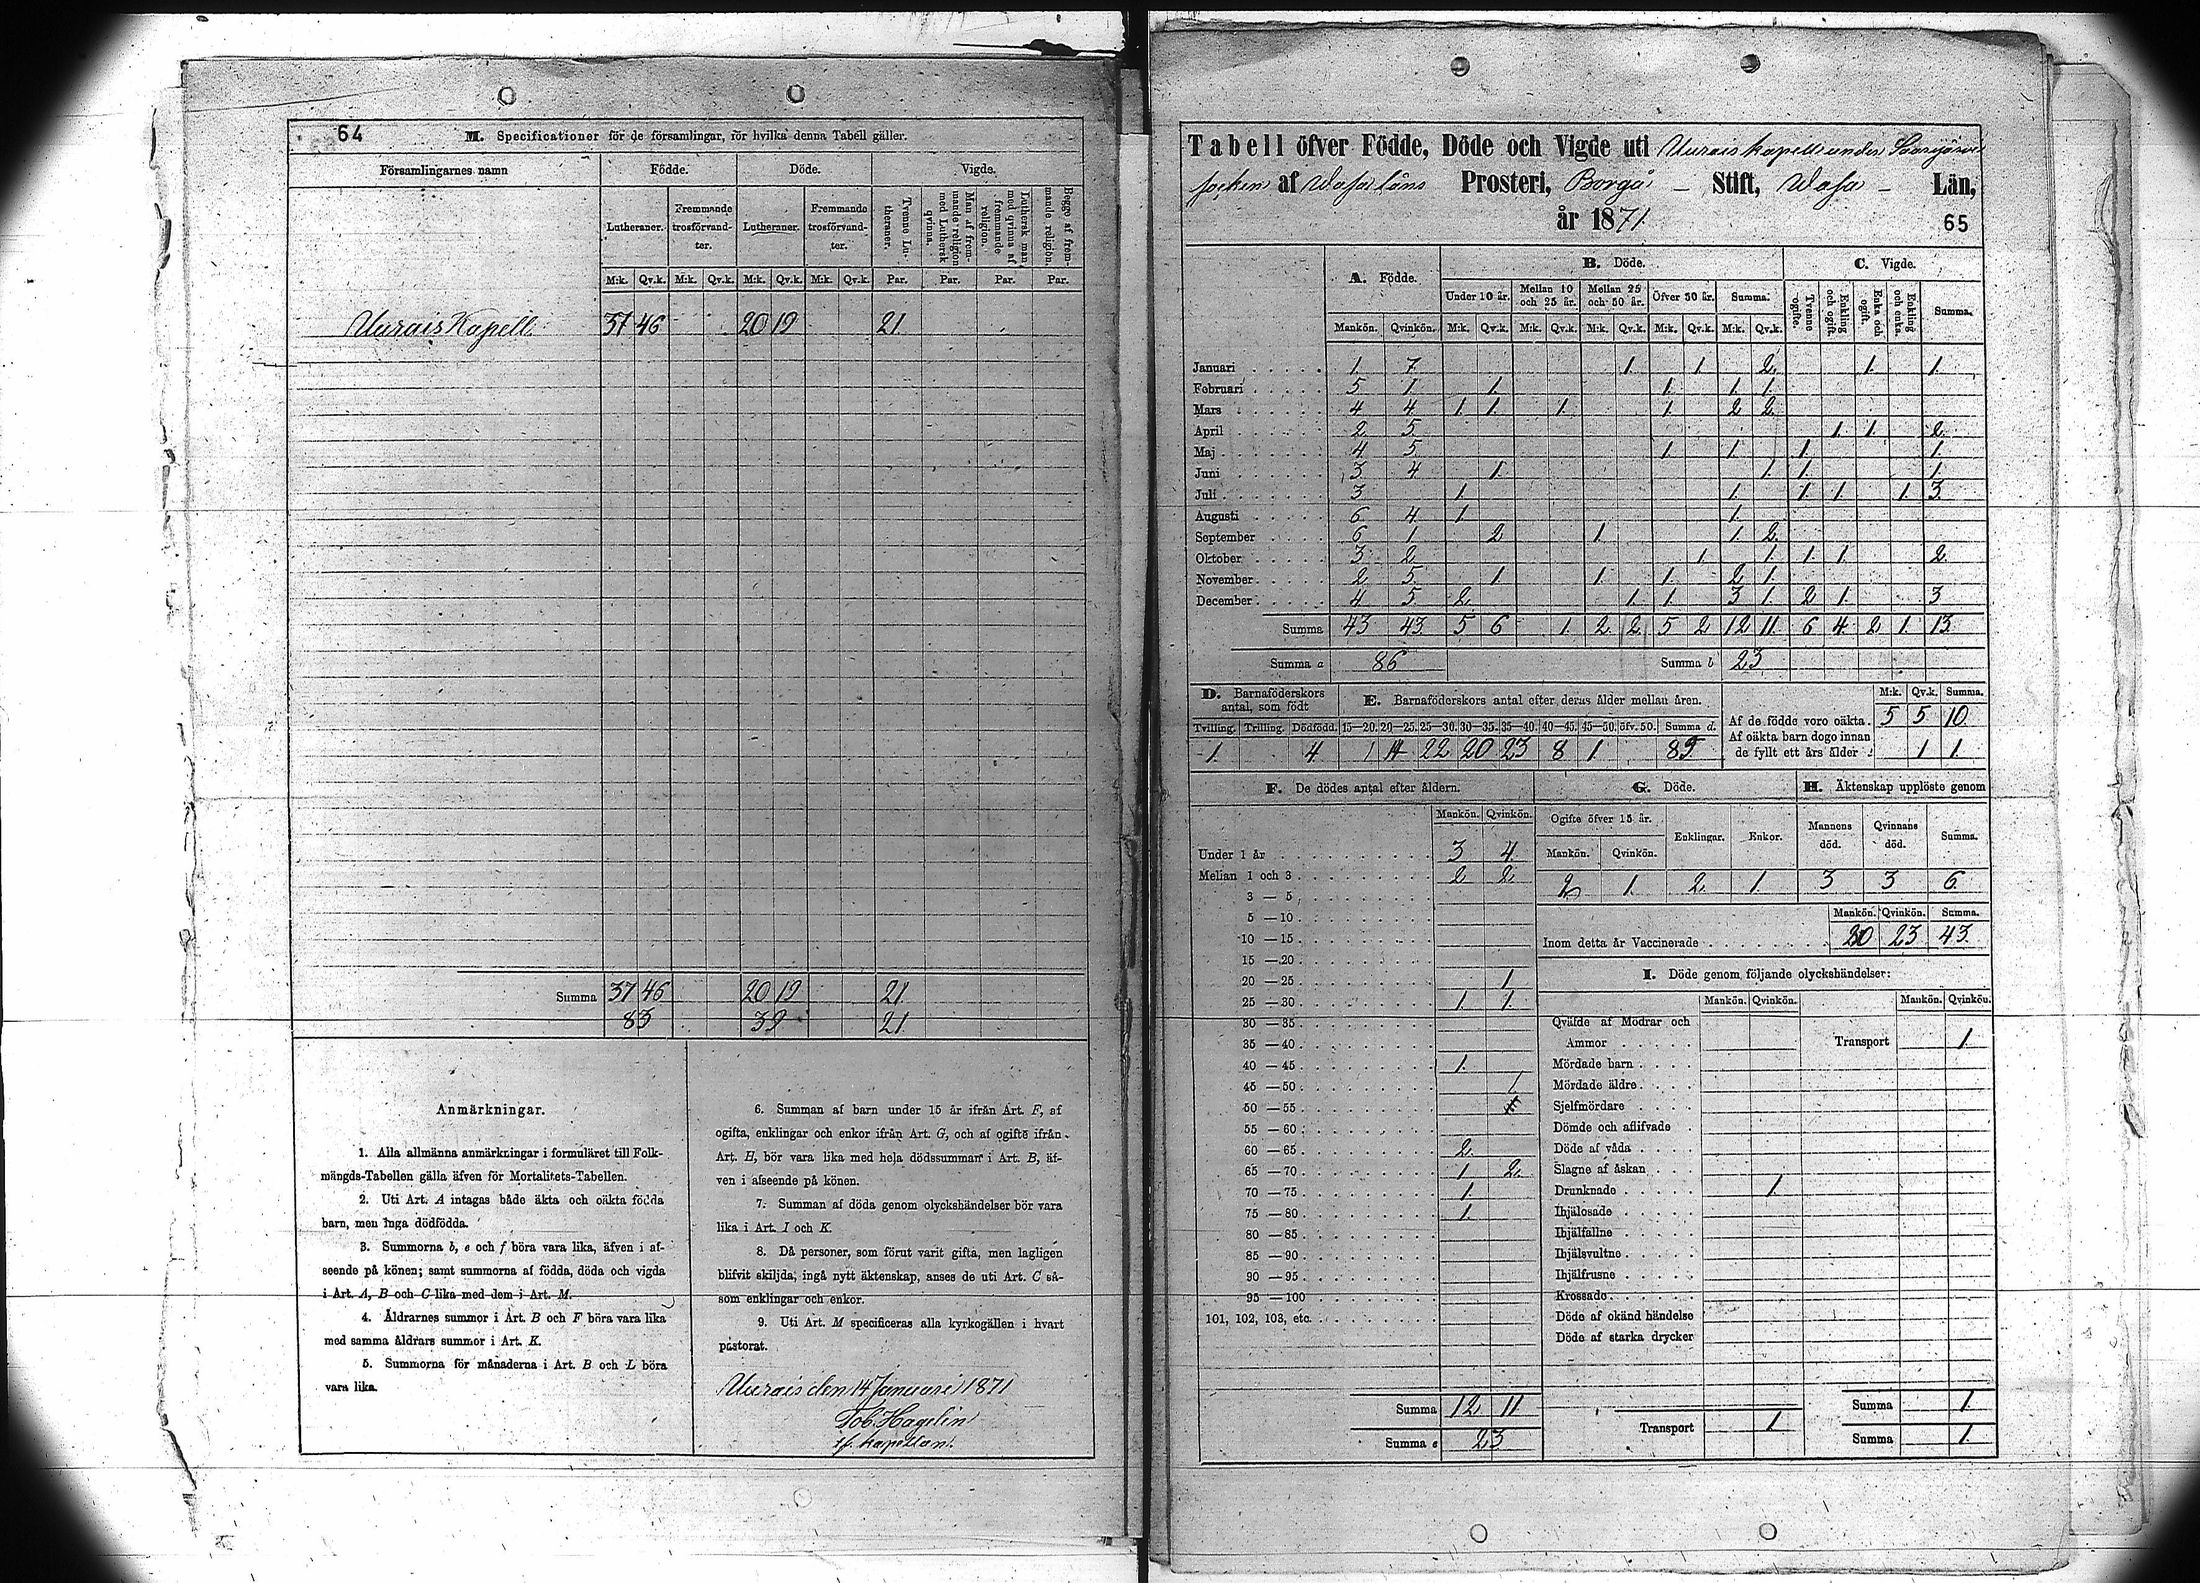 64
M. Specificationer för de församlingar, för hvilka denna Tabell gäller.
Församlingarnes namn Födde. Döde. Vigde.
Lutheraner. Fremmande trosförvandter. Lutheraner. Fremmande trosförvandter. Tvenne Lutheraner. Man af fremmande religion med Luthersk qvinna. Luthersk man med qvinna af fremmande religion. Begge af fremmande religion.
M:k. Qv.k. M:k. Qv.k. M:k. Qv.k. M:k. Qv.k. Par. Par. Par. Par.
Uurais Kapell 37 46 20 19 21
Summa 37 46 20 19 21
83 39 21
Anmärkningar.
1. Alla allmänna anmärkningar i formuläret till Folk-
mängds-Tabellen gälla äfven för Mortalitets-Tabellen.
2. Uti Art. A intagas både äkta och oäkta födda
barn, men inga dödfödda.
3. Summorna b, e och f böra vara lika, äfven i af-
seende på könen; samt summorna af födda, döda och vigda
i Art. A, B och C lika med dem i Art. M.
4. Åldrarnes summor i Art. B och F böra vara lika
med samma åldrars summor i Art. K.
5. Summorna för månaderna i Art. B och L böra
vara lika.
6. Summan af barn under 15 år ifrån Art. F, af
ogifta, enklingar och enkor ifrån Art. G, och af ogifte ifrån
Art. H, bör vara lika med hela dödssumman i Art. B, äf-
ven i afseende på könen.
7. Summan af döda genom olyckshändelser bör vara
lika i Art. I och K.
8. Då personer, som förut varit gifta, men lagligen
blifvit skiljda, ingå nytt äktenskap, anses de uti Art. C så-
som enklingar och enkor.
9. Uti Art. M specificeras alla kyrkogällen i hvart
pastorat.
Uurais den 14 Januari 1871
Tob. Hagelin
kapellan.
Tabell öfver Födde, Döde och Vigde uti Uurais kapell under Saarijärvi
socken af Wasa läns Prosteri, Borgå Stift, Wasa Län,
år 1871.
65
A. Födde. B. Döde. C. Vigde.
Under 10 år. Mellan 10 och 25 år. Mellan 25 och 50 år. Öfver 50 år. Summa. Tvenne ogifte. Enkling och ogift. Enka och ogift. Enkling och enka. Summa.
Mankön. Qvinkön. M:k. Qv.k. M:k. Qv.k. M:k. Qv.k. M:k. Qv.k. M:k. Qv.k.
Januari 1 7 1 1 2 1 1
Februari 5 1 1 1 1 1
Mars 4 4 1 1 1 1 2 2
April 2 5 1 1 2
Maj 4 5 1 1 1 1
Juni 3 4 1 1 1 1
Juli 3 1 1 1 1 1 3
Augusti 6 4 1 1
September 6 1 2 1 1 2
Oktober 3 2 1 1 1 1 2
November 2 5 1 1 1 2 1
December 4 5 2 1 1 3 1 2 1 3
Summa 43 43 5 6 1 2 2 5 2 12 11 6 4 2 1 13
Summa a 86 Summa b 23
D. Barnaföderskors antal, som födt
Tvilling. Trilling. Dödfödd.
1 4
E. Barnaföderskors antal efter deras ålder mellan åren.
15—20. 20—25. 25—30. 30—35. 35—40. 40—45. 45—50. öfv. 50. Summa d.
1 14 22 20 23 8 1 89
M:k. Qv.k. Summa.
Af de födde voro oäkta 5 5 10
Af oäkta barn dogo innan
de fyllt ett års ålder 1 1
F. De dödes antal efter åldern.
Mankön. Qvinkön.
Under 1 år 3 4
Mellan 1 och 3 2 2
3 — 5
5 — 10
10 — 15
15 — 20
20 — 25 1
25 — 30 1 1
30 — 35
35 — 40
40 — 45 1
45 — 50 1
50 — 55
55 — 60
60 — 65 2
65 — 70 1 2
70 — 75 1
75 — 80 1
80 — 85
85 — 90
90 — 95
95 — 100
101, 102, 103, etc.
Summa 12 11
Summa e 23
G. Döde.
Ogifte öfver 15 år. Enklingar. Enkor.
Mankön. Qvinkön.
2 1 2 1
H. Äktenskap upplöste genom
Mannens död. Qvinnans död. Summa.
3 3 6
Mankön. Qvinkön. Summa.
Inom detta år Vaccinerade 20 23 43
I. Döde genom följande olyckshändelser:
Mankön. Qvinkön. Mankön. Qvinkön.
Qväfde af Mödrar och
Ammor Transport 1
Mördade barn
Mördade äldre
Sjelfmördare
Dömde och aflifvade
Döde af våda
Slagne af åskan
Drunknade 1
Ihjälosade
Ihjälfallne
Ihjälsvultne
Ihjälfrusne
Krossade
Döde af okänd händelse
Döde af starka drycker
Transport 1
Summa 1
Summa 1